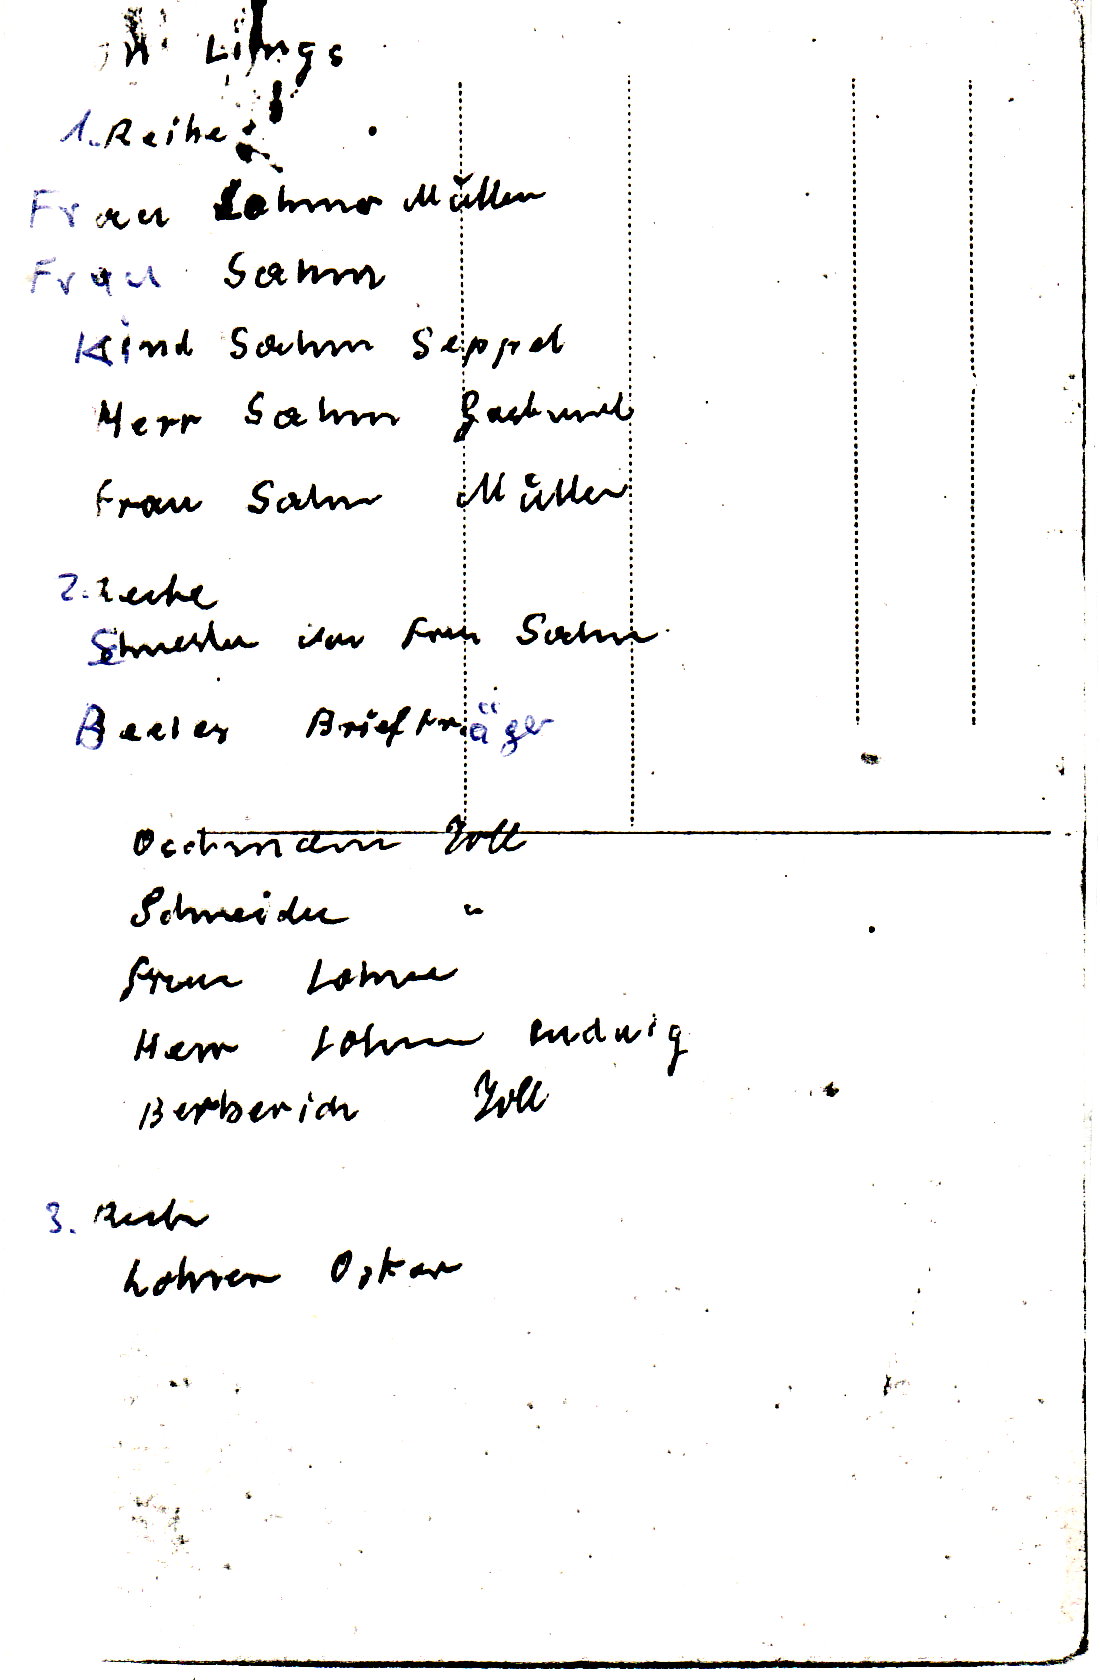 Lings
1. Reihe
Frau Lohner Müller
Frau Sahm
Kind Sahm Seppel
Herr Sahm Gastwirt
Frau Sahm Müller
2. Reihe
Schwester von Frau Sahm
Briefträger
Oechsmann Zoll
Schneider "
Frau Lohner
Herr Lohner Ludwig
Berberich Zoll
3. Reihe
Lohrer Oskar